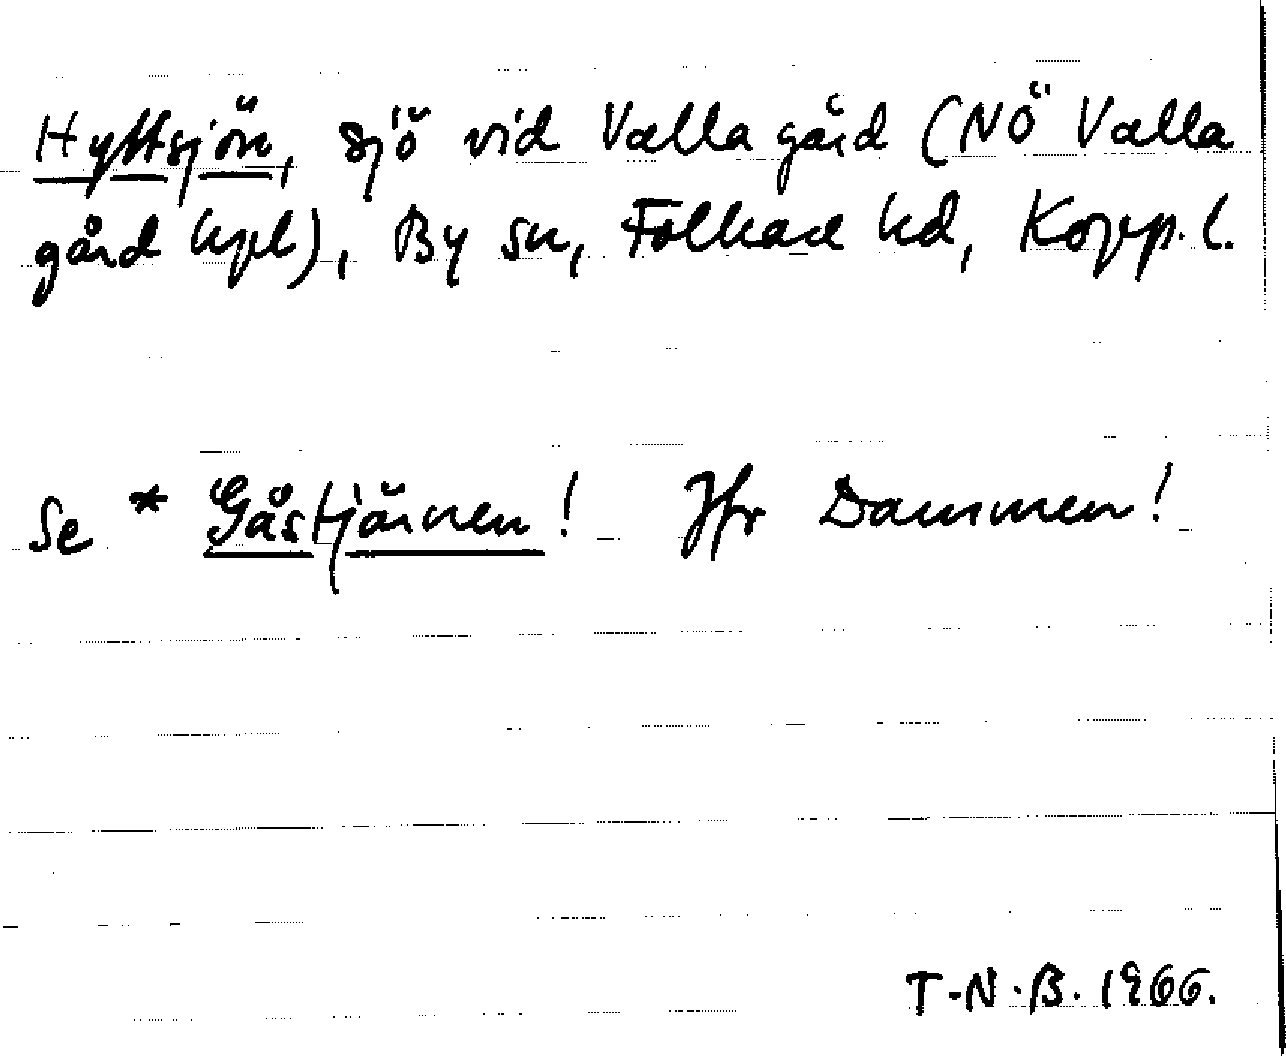 Hyttsjön, sjö vid Valla gård (NÖ Valla
gård kpl), By sn, Folkare hd, Kopp. l.
Se * Gåstjärnen! Jfr Dammen!
T-N.B. 1966.